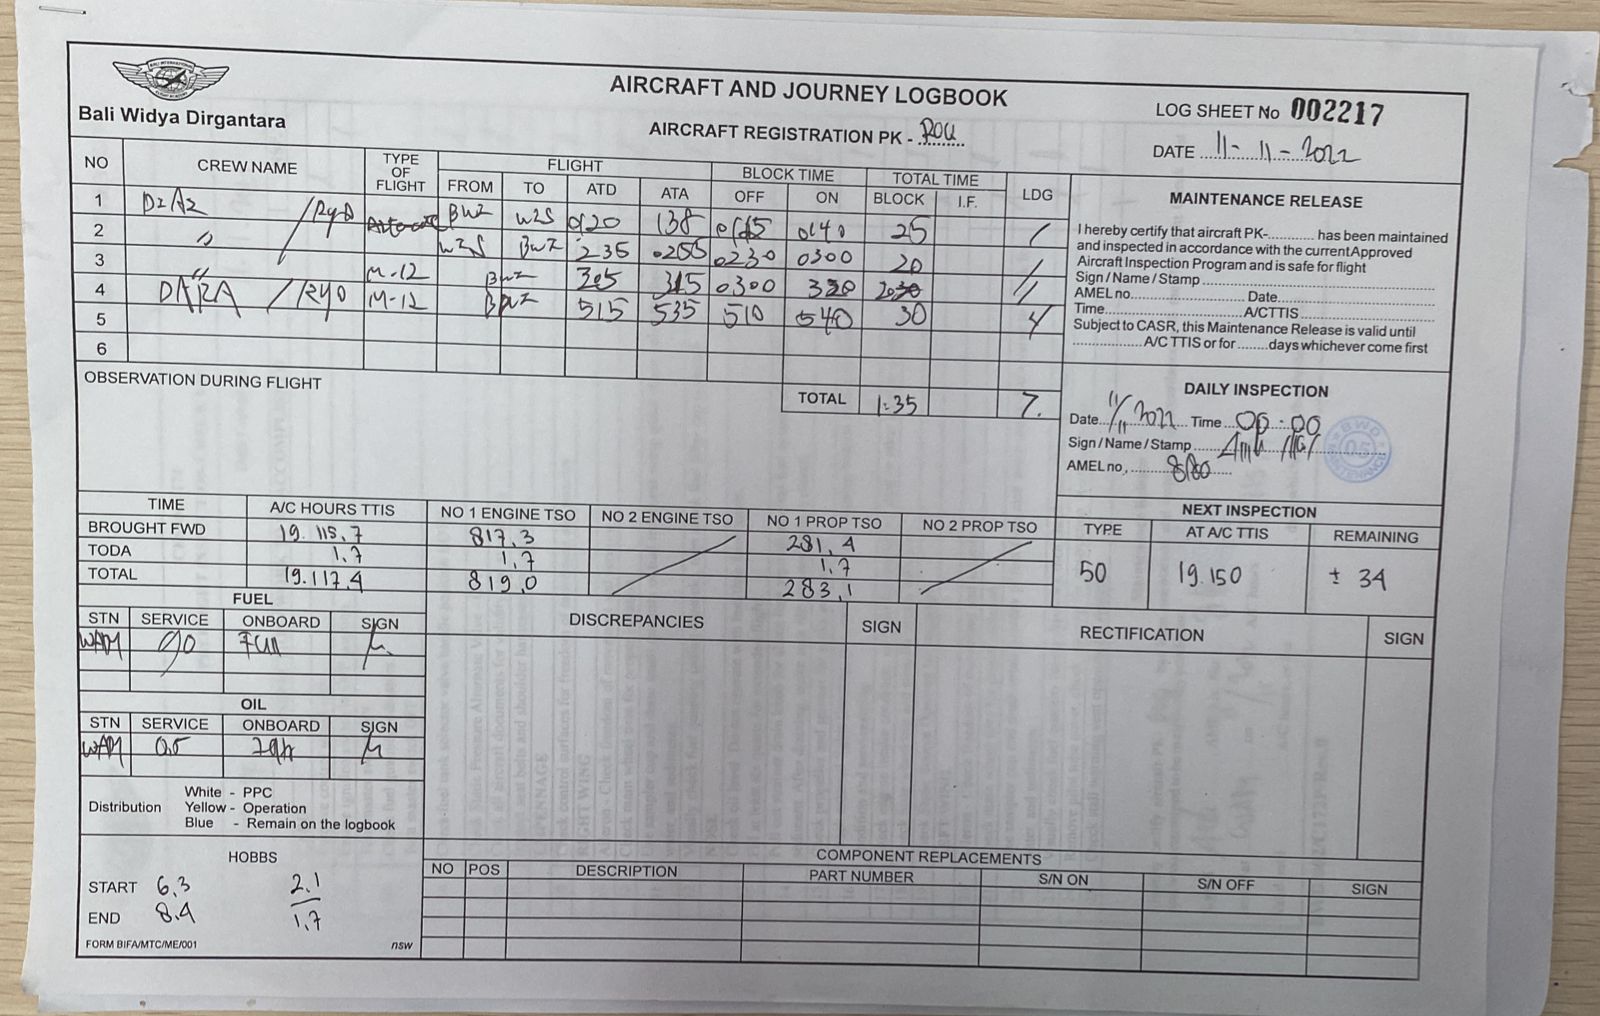 BALI INTERNATIONAL
FLIGHT ACADEMY
Bali Widya Dirgantara
AIRCRAFT AND JOURNEY LOGBOOK
AIRCRAFT REGISTRATION PK - ROU
LOG SHEET No 002217
DATE 11-11-2022
NO CREW NAME TYPE OF FLIGHT FLIGHT BLOCK TIME TOTAL TIME LDG
FROM TO ATD ATA OFF ON BLOCK I.F.
1 /Ryo BWZ WZS 0120 138 0140 25 1
2 " WZS BWZ 235 0255 0230 0300 20 1
3 " M-12 BWZ 305 315 0300 320 20 1
4 DARA /RYO M-12 BWZ 515 535 510 540 30 4
5
6
TOTAL 1:35 7.
OBSERVATION DURING FLIGHT
MAINTENANCE RELEASE
I hereby certify that aircraft PK-............ has been maintained
and inspected in accordance with the current Approved
Aircraft Inspection Program and is safe for flight
Sign / Name / Stamp
AMEL no. Date
Time A/CTTIS
Subject to CASR, this Maintenance Release is valid until
A/C TTIS or for ........ days whichever come first
DAILY INSPECTION
Date 11/11 2022 Time 00:00
Sign / Name / Stamp
AMEL no,
BWD
05
MAINTENANCE
TIME A/C HOURS TTIS NO 1 ENGINE TSO NO 2 ENGINE TSO NO 1 PROP TSO NO 2 PROP TSO
BROUGHT FWD 19.115,7 817,3 281,4
TODA 1,7 1,7 1,7
TOTAL 19.117,4 819,0 283,1
NEXT INSPECTION
TYPE AT A/C TTIS REMAINING
50 19.150 ± 34
FUEL
STN SERVICE ONBOARD SIGN
90 Full
OIL
STN SERVICE ONBOARD SIGN
0,5
DISCREPANCIES SIGN RECTIFICATION SIGN
Distribution
White - PPC
Yellow - Operation
Blue - Remain on the logbook
HOBBS
START 6,3 2.1
END 8.4 1,7
FORM BIFA/MTC/ME/001 nsw
COMPONENT REPLACEMENTS
NO POS DESCRIPTION PART NUMBER S/N ON S/N OFF SIGN